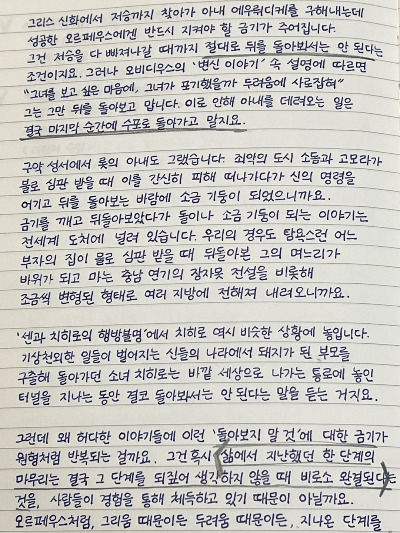 그리스 신화에서 저승까지 찾아가 아내 에우뤼디케를 구해내는데
성공한 오르페우스에겐 반드시 지켜야 할 금기가 주어집니다.
그건 저승을 다 빠져나갈 때까지 절대로 뒤를 돌아보서는 안 된다는
조건이지요. 그러나 오비디우스의 '변신 이야기' 속 설명에 따르면
"그녀를 보고 싶은 마음에, 그녀가 포기했을까 두려움에 사로잡혀"
그는 그만 뒤를 돌아보고 맙니다. 이로 인해 아내를 데려오는 일은
결국 마지막 순간에 수포로 돌아가고 말지요.
구약 성서에서 롯의 아내도 그랬습니다. 죄악의 도시 소돔과 고모라가
불로 심판 받을 때 이를 간신히 피해 떠나가다가 신의 명령을
어기고 뒤를 돌아보는 바람에 소금 기둥이 되었으니까요.
금기를 깨고 뒤돌아보았다가 돌이나 소금 기둥이 되는 이야기는
전세계 도처에 널려 있습니다. 우리의 경우도 탐욕스런 어느
부자의 집이 물로 심판 받을 때 뒤돌아본 그의 며느리가
바위가 되고 마는 충남 연기의 장자못 전설을 비롯해
조금씩 변형된 형태로 여러 지방에 전해져 내려오니까요.
'센과 치히로의 행방불명'에서 치히로 역시 비슷한 상황에 놓입니다.
기상천외한 일들이 벌어지는 신들의 나라에서 돼지가 된 부모를
구출해 돌아가던 소녀 치히로는 바깥 세상으로 나가는 통로에 놓인
터널을 지나는 동안 결코 돌아보서는 안 된다는 말을 듣는 거지요.
그런데 왜 허다한 이야기들에 이런 '돌아보지 말 것'에 대한 금기가
원형처럼 반복되는 걸까요. 그건 혹시 삶에서 지난했던 한 단계의
마무리는 결국 그 단계를 되짚어 생각하지 않을 때 비로소 완결된다는
것을, 사람들이 경험을 통해 체득하고 있기 때문이 아닐까요.
오르페우스처럼, 그리움 때문이든 두려움 때문이든, 지나온 단계를